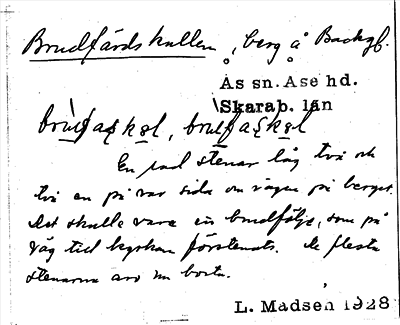 Brudfärdskullen, berg å Backgb.
Ås sn. Åse hd.
Skarab. län
En rad stenar låg två och
två en på var sida om vägen på berget.
Det skulle vara en brudfölje, som på
väg till kyrkan förstenats. De flesta
stenarna äro nu borta.
L. Madsen 1928